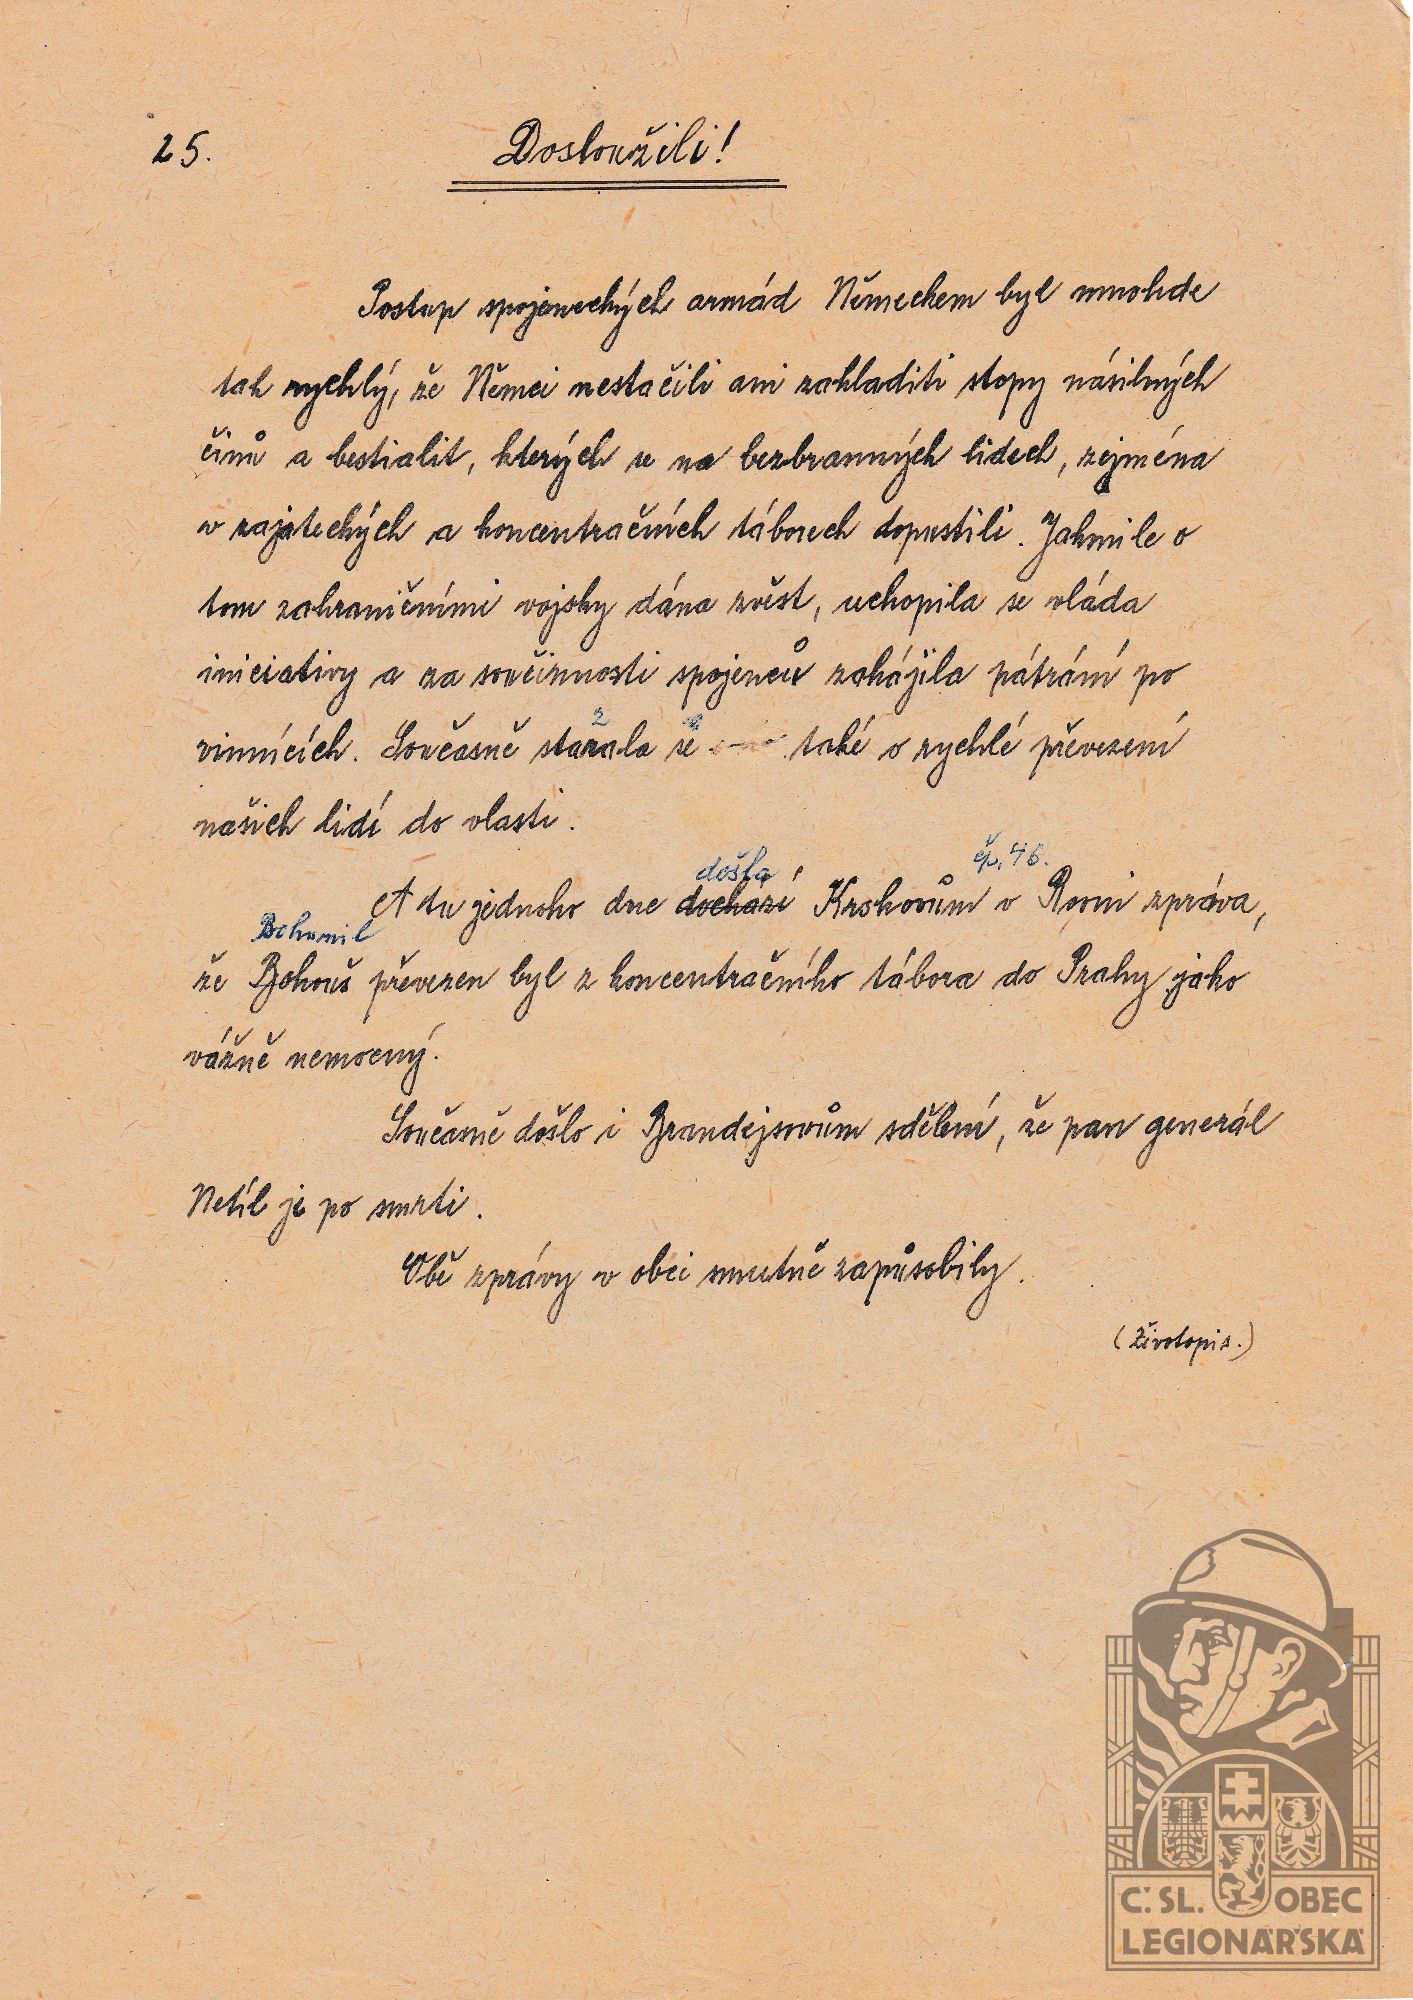 25. Dosloužili!
Postup spojeneckých armád Německem byl mnohde
tak rychlý, že Němci nestačili ani zahladiti stopy násilných
činů a bestialit, kterých se na bezbranných lidech, zejména
v zajateckých a koncentračních táborech dopustili. Jakmile o
tom zahraničními vojsky dána zvěst, uchopila se vláda
iniciativy a za součinnosti spojenců zahájila pátrání po
vinnících. Současně starala se také o rychlé převezení
našich lidí do vlasti.
došla čp. 46.
A tu jednoho dne dochazí Krskovům v Rovni zpráva,
Bohumil
že Bohouš převezen byl z koncentračního tábora do Prahy jako
vážně nemocný.
Současně došlo i Brandejsovům sdělení, že pan generál
Netík je po smrti.
Obě zprávy v obci smutně zapůsobily.
(Životopis.)
Č. SL. OBEC
LEGIONÁŘSKÁ